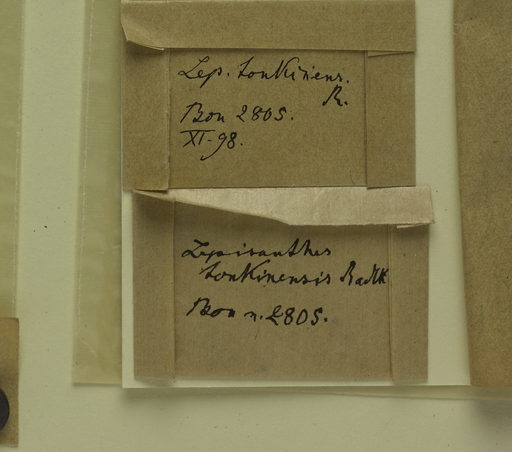 Lep. tonkinens.
R.
Bon 2805.
XI-98.
Lepisanthes
tonkinensis Radlk
Bon n. 2805.